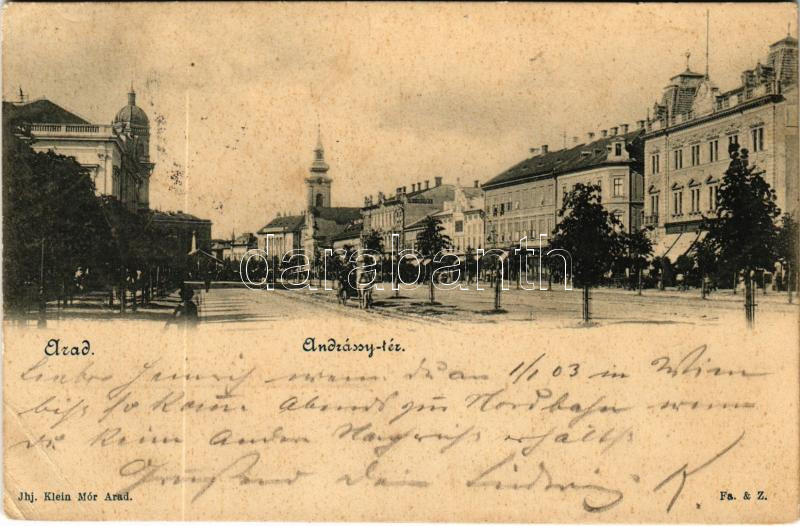 darabanth.com
Arad.
Andrássy-tér.
Lieber Heinrich wenn du am 1/1 03 in Wien
bist so komm Abends zur Nordbahn wenn
du keine andere Nachricht erhälst
Grüssend Dein Ludwig K
Jhj. Klein Mór Arad.
Fa. & Z.